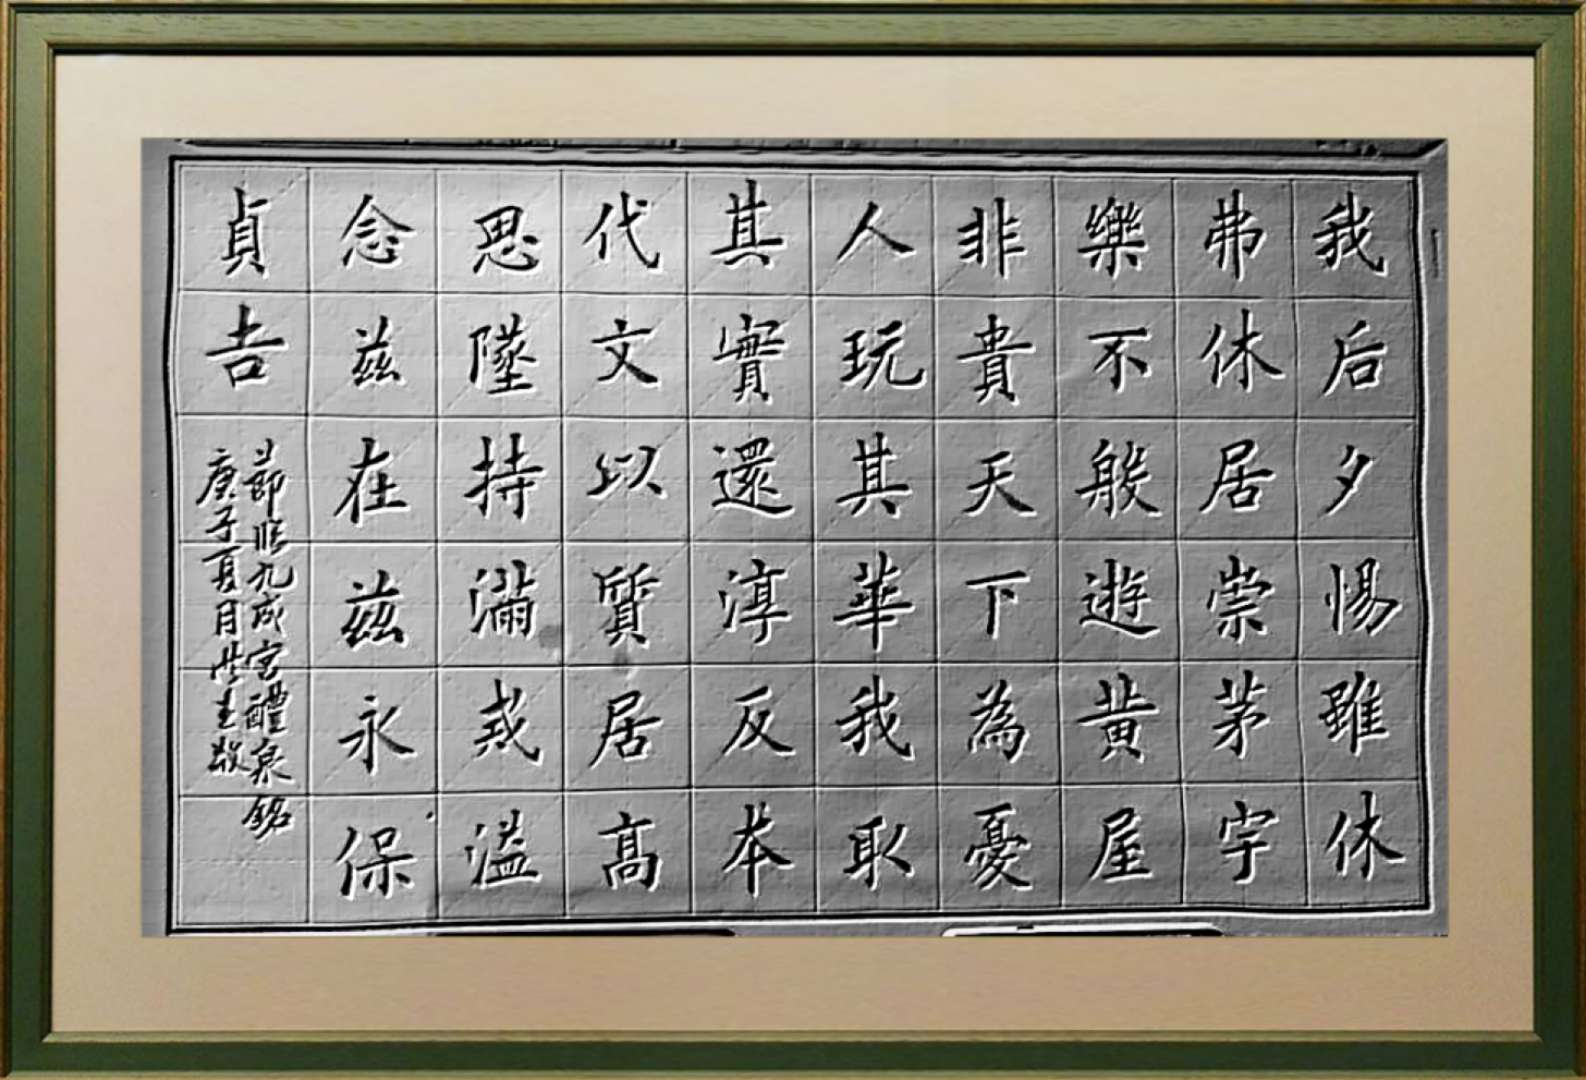 我后夕惕雖休
弗休居崇茅宇
樂不般遊黄屋
非貴天下為憂
人玩其華我取
其實還淳反本
代文以質居高
思墜持滿戒溢
念兹在兹永保
貞吉
節臨九成宮醴泉銘
庚子夏月